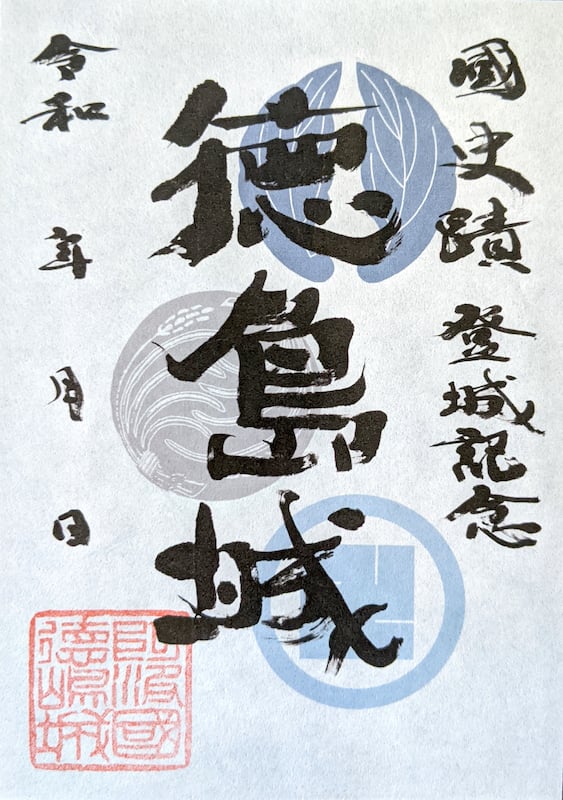 國史蹟 登城記念
徳島城
令和 年 月 日
阿波國
徳島城